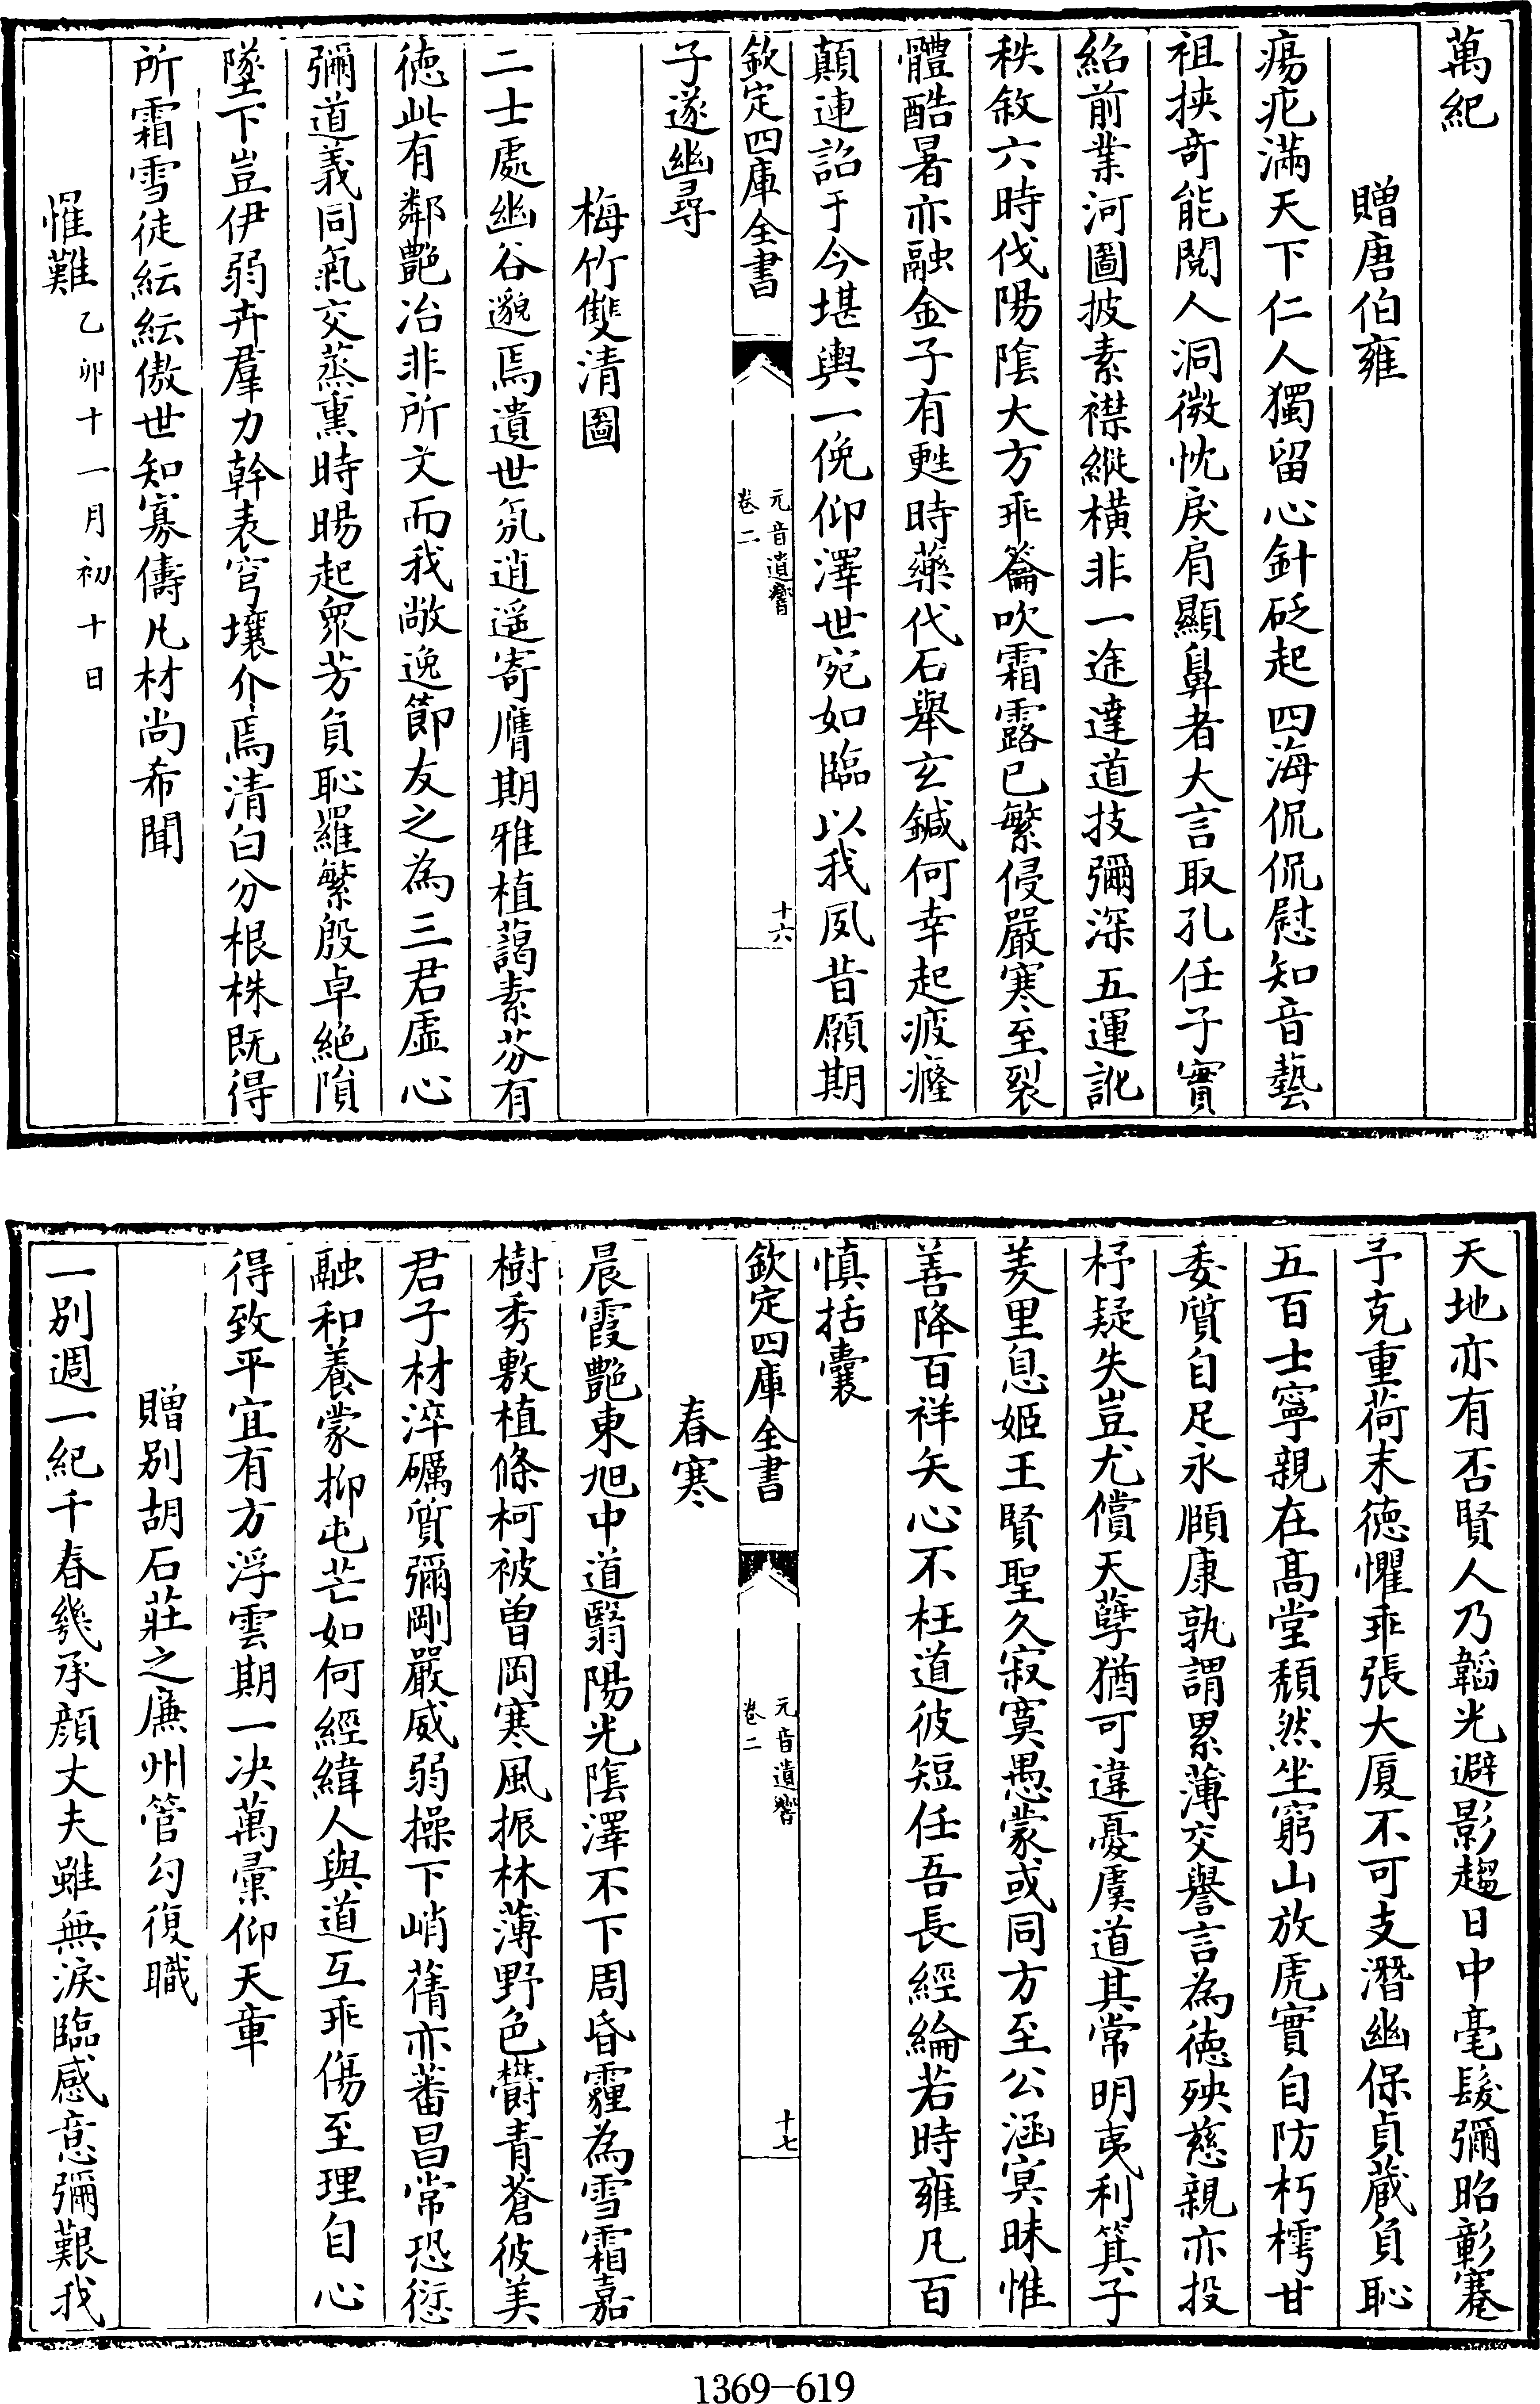 萬紀
贈唐伯雍
瘍疕滿天下仁人獨留心針砭起四海侃侃慰知音藝
祖挾奇能閱人洞微忱戾肩顯鼻者大言取孔任子實
紹前業河圖披素襟縱橫非一途達道技彌深五運訛
秩敘六時伐陽陰大方乖籥吹霜露已繁侵嚴寒至裂
體酷暑亦融金子有甦時藥代石舉玄鍼何幸起疲癃
顛連詔于今堪輿一俛仰澤世宛如臨以我夙昔願期
欽定四庫全書
元音遺響
卷二
十六
子遂幽尋
梅竹雙清圖
二士處幽谷邈焉遺世氛逍遥寄膺期雅植藹素芬有
徳此有鄰艶冶非所文而我敞逸節友之為三君虛心
彌道義同氣交蒸熏時暘起衆芳負恥羅繁殷卓絶隕
墜下豈伊弱卉羣力幹表穹壤介焉清白分根株既得
所霜雪徒紜紜傲世知寡儔凡材尚希聞
惟難乙卯十一月初十日
天地亦有否賢人乃韜光避影趨日中毫髮彌昭彰蹇
予克重荷末徳懼乖張大厦不可支潛幽保貞蔵負恥
五百士寧親在髙堂頽然坐窮山放虎實自防朽樗甘
委質自足永頤康孰謂累薄交譽言為徳殃慈親亦投
杼疑失豈尤償天孽猶可違憂虞道其常明夷利箕子
羑里息姬王賢聖久寂寞愚蒙或同方至公涵冥昧惟
善降百祥矢心不枉道彼短任吾長經綸若時雍凡百
慎括囊
欽定四庫全書
元音遺響
卷二
十七
春寒
晨霞艶東旭中道翳陽光陰澤不下周昏霾為雪霜嘉
樹秀敷植條柯被曽岡寒風振林薄野色欝青蒼彼美
君子材淬礪質彌剛嚴威弱操下峭蒨亦蕃昌常恐愆
融和養蒙抑屯芒如何經緯人與道互乖傷至理自心
得致平宜有方浮雲期一决萬彚仰天章
贈别胡石莊之亷州管勾復職
一别週一紀千春幾承顔丈夫雖無淚臨感意彌艱我
1369-619